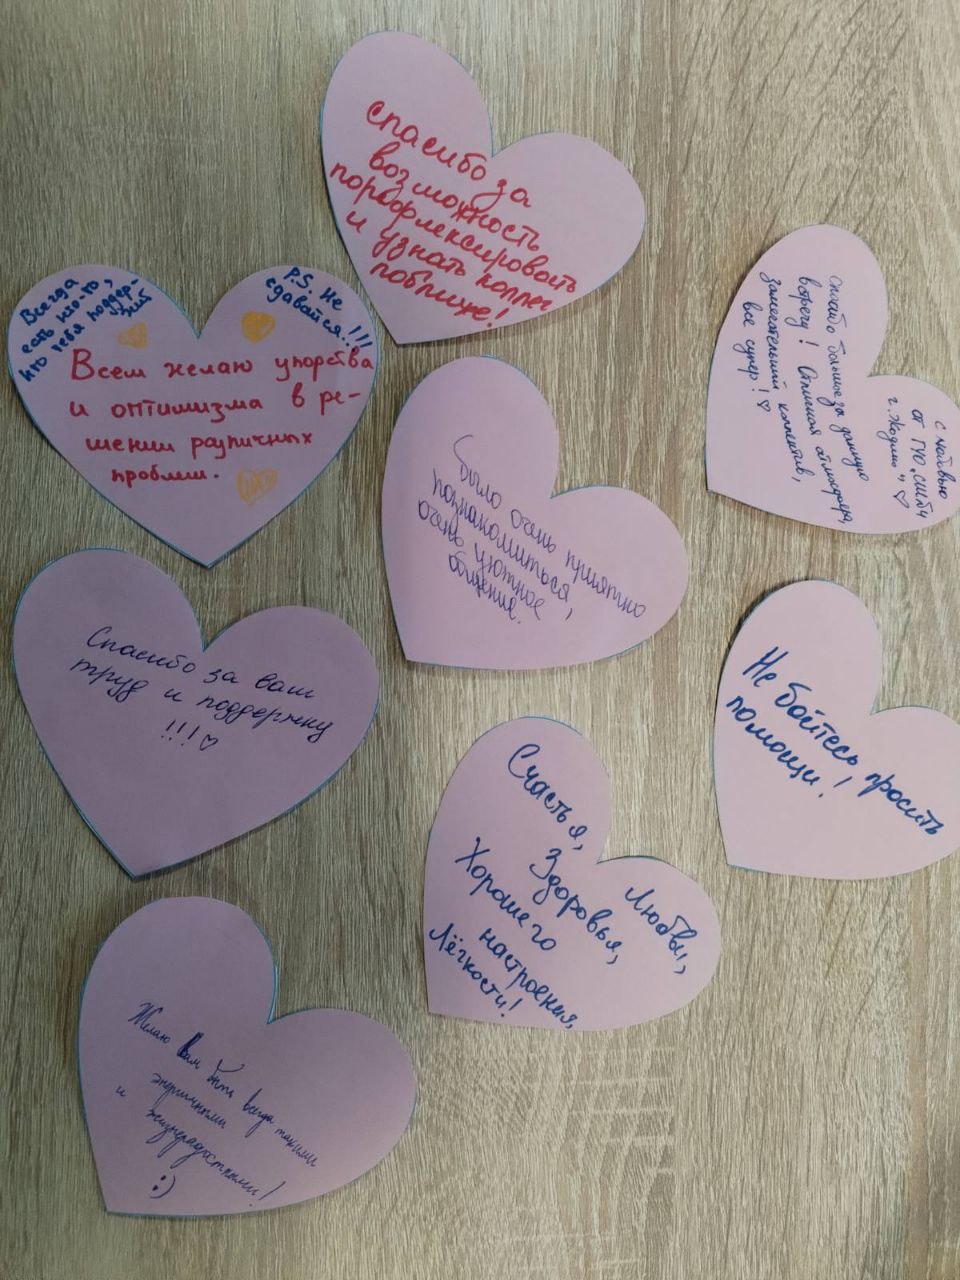 Спасибо за
возможность
порефлексировать
и узнать коллег
поближе!
Всегда
есть кто-то,
кто тебя поддер-
жит
P.S. не
сдавайся!!!
Всем желаю упорства
и оптимизма в ре-
шении различных
проблем.
Спасибо большое за данную
встречу! Отличная атмосфера,
замечательный коллектив,
все супер!♡
с любовью
от
г. Жодино" ♡
Было очень приятно
познакомиться,
очень уютное
общение.
Спасибо за ваш
труд и поддержку
!!!♡
Не бойтесь просить
помощи!
Счастья, Любви,
Здоровья,
Хорошего
настроения,
Лёгкости!
Желаю Вам быть всегда такими
энергичными
и жизнерадостными!
:)